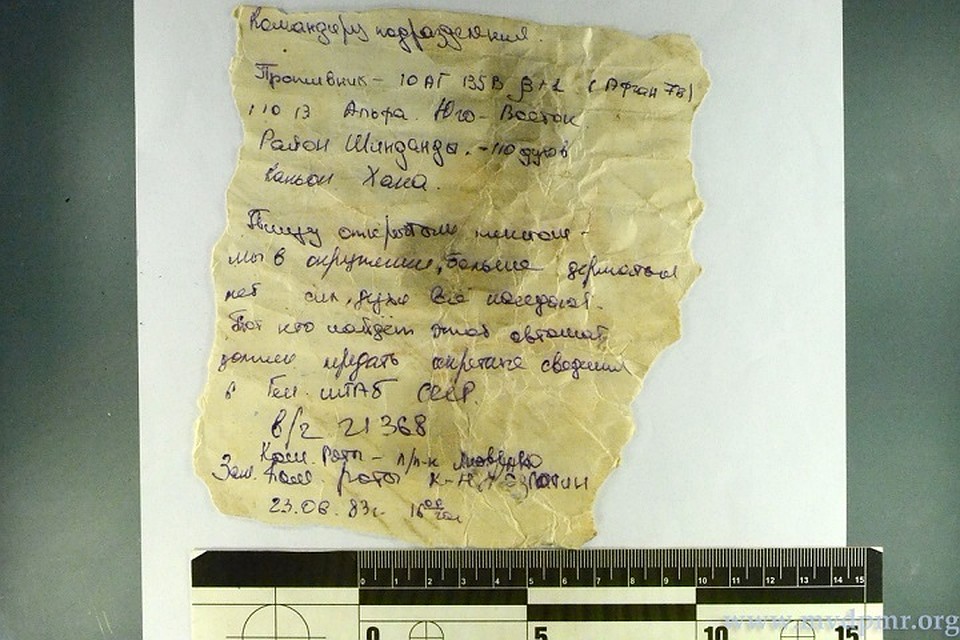 Командиру подразделения.
Противник - 10 АГ 135 В (Афган 78)
110 13 Альфа. Юго-Восток
Район Шинданды. - 110 духов
Каньон Хана.
Пишу открытым текстом -
мы в окружении, больше держаться
нет сил, духи все наседают.
Тот кто найдёт этот автомат
должен предать секретные сведения
в Ген. штаб СССР.
в/ч 21368
Ком. Роты - п/п-к
Зам. Ком. роты к-н
23.06.83г. 16
0 1 2 3 4 5 6 7 8 9 10 11 12 13 14 15
0 5 10 15
www.mvdpmr.org